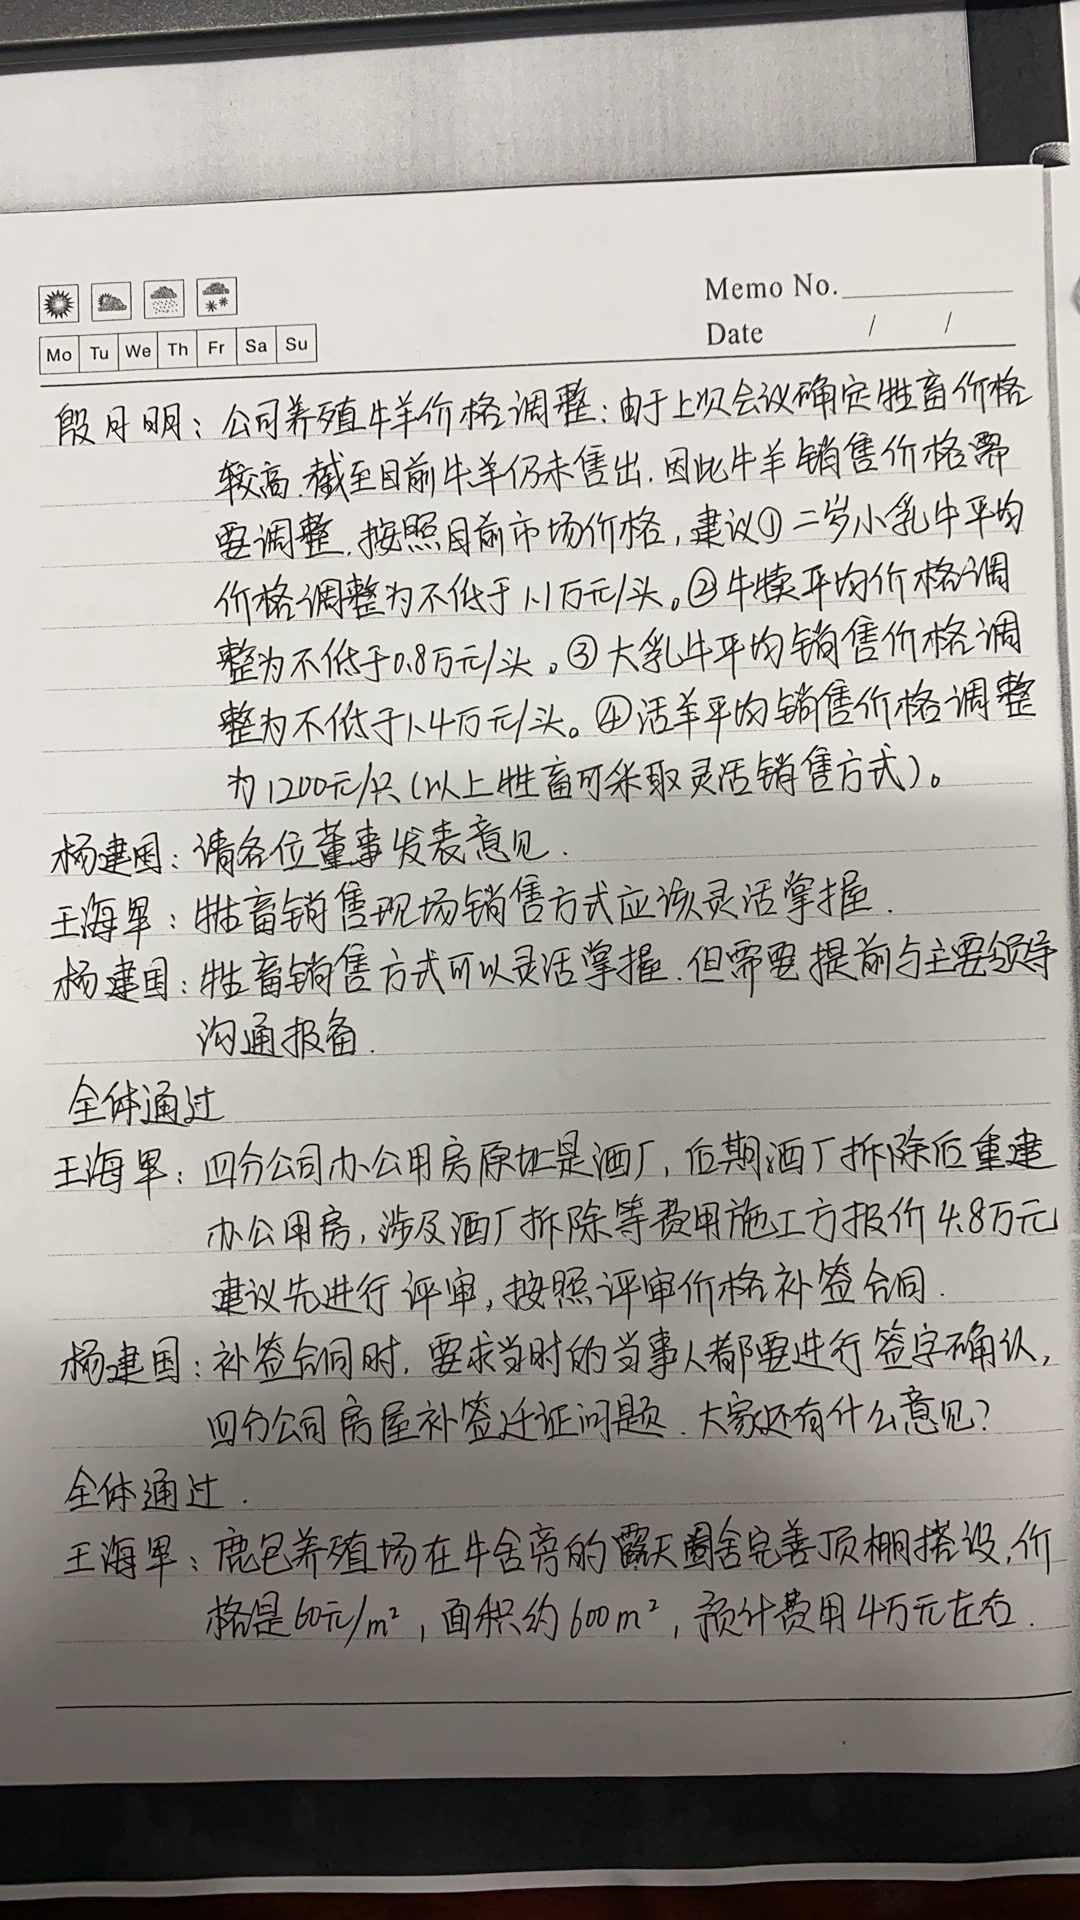 Memo No.
Date / /
Mo Tu We Th Fr Sa Su
殷月明：公司养殖牛羊价格调整：由于上次会议确定牲畜价格
较高.截至目前牛羊仍未售出.因此牛羊销售价格需
要调整.按照目前市场价格，建议①二岁小乳牛平均
价格调整为不低于1.1万元/头。②牛犊平均价格调
整为不低于0.8万元/头。③大乳牛平均销售价格调
整为不低于1.4万元/头。④活羊平均销售价格调整
为1200元/只(以上牲畜可采取灵活销售方式)。
杨建国：请各位董事发表意见.
王海军：牲畜销售现场销售方式应该灵活掌握.
杨建国：牲畜销售方式可以灵活掌握.但需要提前与主要领导
沟通报备.
全体通过
王海军：四分公司办公用房原址是酒厂，后期酒厂拆除后重建
办公用房，涉及酒厂拆除等费用施工方报价4.8万元
建议先进行评审，按照评审价格补签合同.
杨建国：补签合同时，要求当时的当事人都要进行签字确认，
四分公司房屋补签迁证问题.大家还有什么意见?
全体通过.
王海军：鹿包养殖场在牛舍旁的露天圈舍完善顶棚搭设，价
格是60元/m²，面积约600m²，预计费用4万元左右.